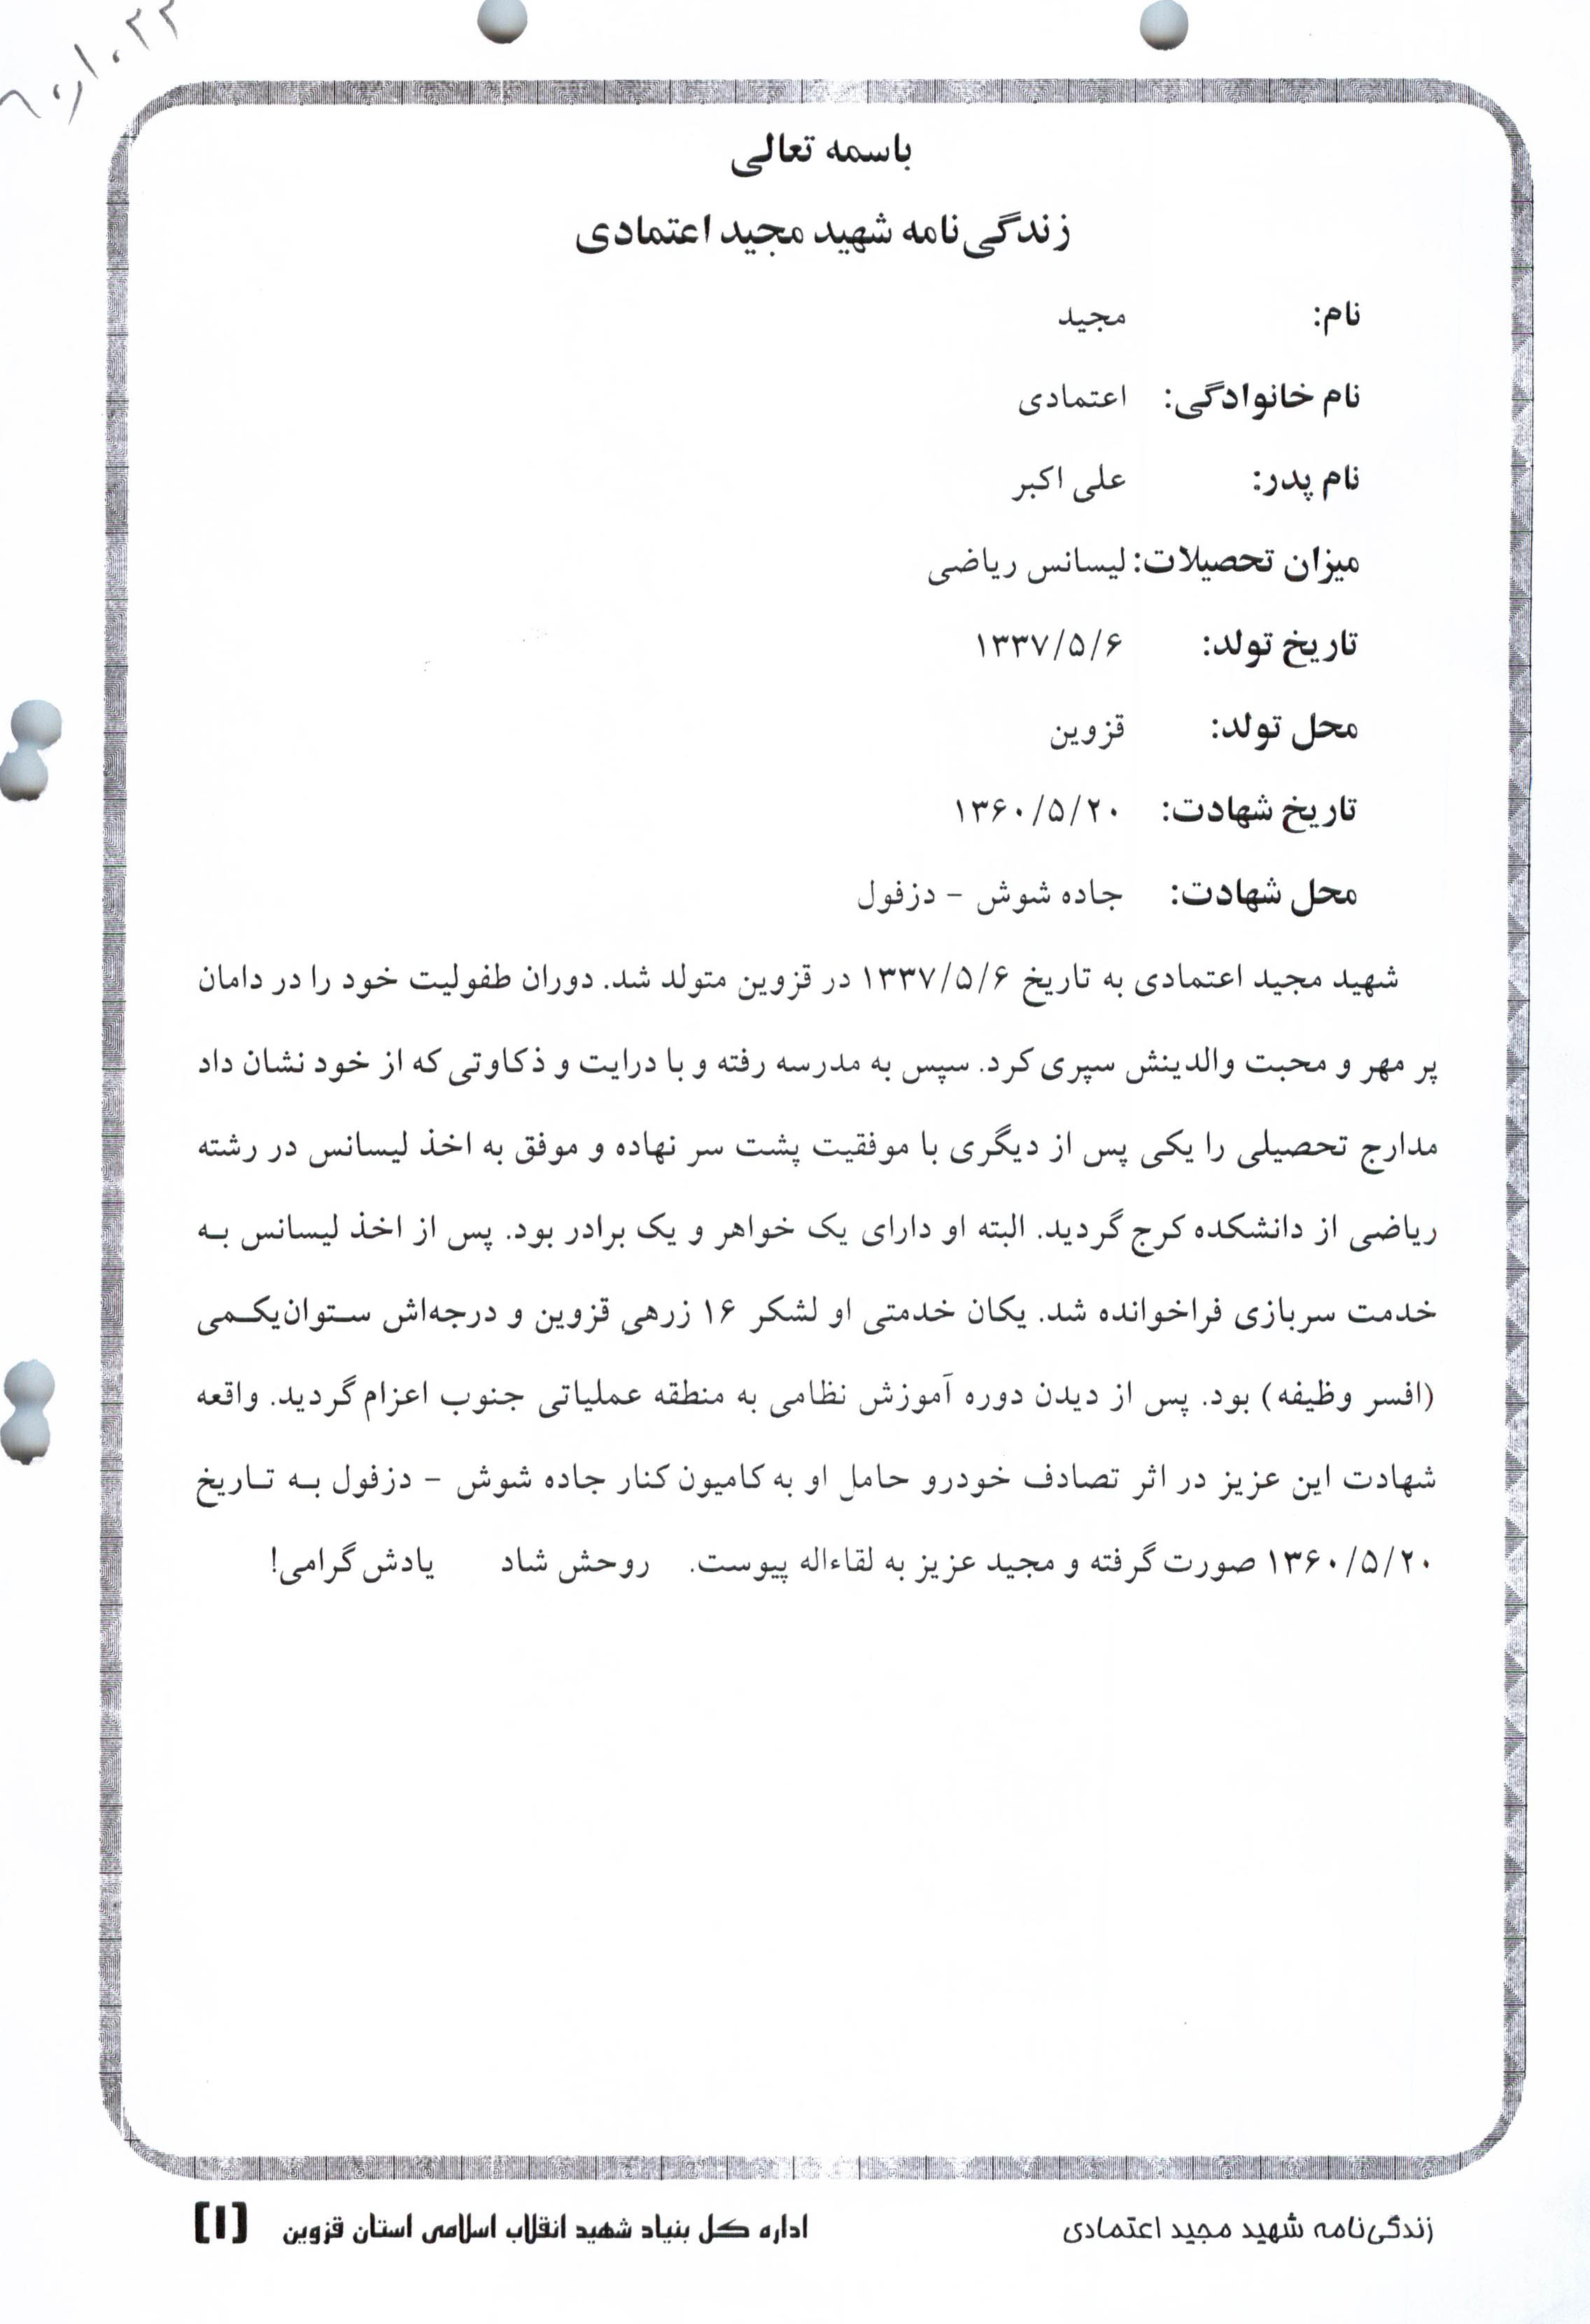 باسمه تعالی
زندگی‌نامه شهید مجید اعتمادی
نام: مجید
نام خانوادگی: اعتمادی
نام پدر: علی اکبر
میزان تحصیلات: لیسانس ریاضی
تاریخ تولد: ۱۳۳۷/۵/۶
محل تولد: قزوین
تاریخ شهادت: ۱۳۶۰/۵/۲۰
محل شهادت: جاده شوش – دزفول
شهید مجید اعتمادی به تاریخ ۱۳۳۷/۵/۶ در قزوین متولد شد. دوران طفولیت خود را در دامان
پر مهر و محبت والدینش سپری کرد. سپس به مدرسه رفته و با درایت و ذکاوتی که از خود نشان داد
مدارج تحصیلی را یکی پس از دیگری با موفقیت پشت سر نهاده و موفق به اخذ لیسانس در رشته
ریاضی از دانشکده کرج گردید. البته او دارای یک خواهر و یک برادر بود. پس از اخذ لیسانس به
خدمت سربازی فراخوانده شد. یکان خدمتی او لشکر ۱۶ زرهی قزوین و درجه‌اش ستوان‌یکمی
(افسر وظیفه) بود. پس از دیدن دوره آموزش نظامی به منطقه عملیاتی جنوب اعزام گردید. واقعه
شهادت این عزیز در اثر تصادف خودرو حامل او به کامیون کنار جاده شوش – دزفول به تاریخ
۱۳۶۰/۵/۲۰ صورت گرفته و مجید عزیز به لقاءاله پیوست. روحش شاد یادش گرامی!
زندگی‌نامه شهید مجید اعتمادی اداره کل بنیاد شهید انقلاب اسلامی استان قزوین [۱]